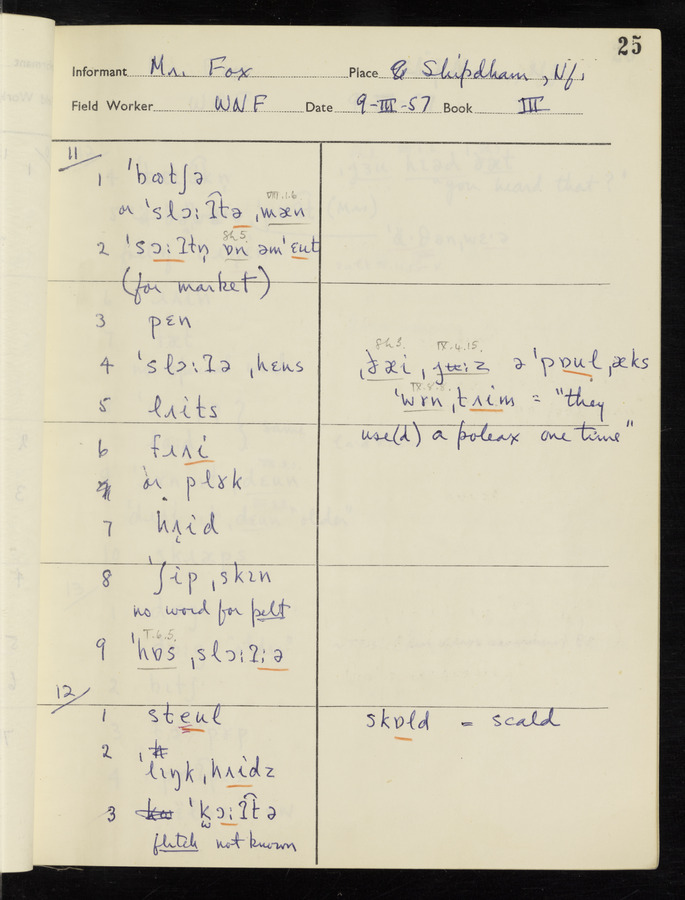 25
Informant Mr. Fox Place Shipdham, Nf.
Field Worker WNF Date 9-III-57 Book III
11
1 ˈbɷtʃə
VIII.1.6
or ˈslɔ:ʔ͡tə ˌmæn
Sh5.
2 ˈsɔ:ʔtn̩ ɒn əmˈɛut
(for market)
3 pɛn
4 ˈslɔ:ʔə ˌhɛus
5 lʌits
6 flʌi
or plɤk
7 hʌid
8 ˈʃip ˌskɪn
no word for pelt
I.6.5.
9 ˈhɒs ˌslɔ:ʔ:ə
12
1 stɛul
2
ˈlɪŋk ˌhʌidz
3 ˈkɔ:ʔ͡tə
flitch not known
IX.4.15.
ə ˈpɒul ˌæks
ˈwɤn ˌtʌim = "they
use(d) a poleax one time"
skɒld = scald